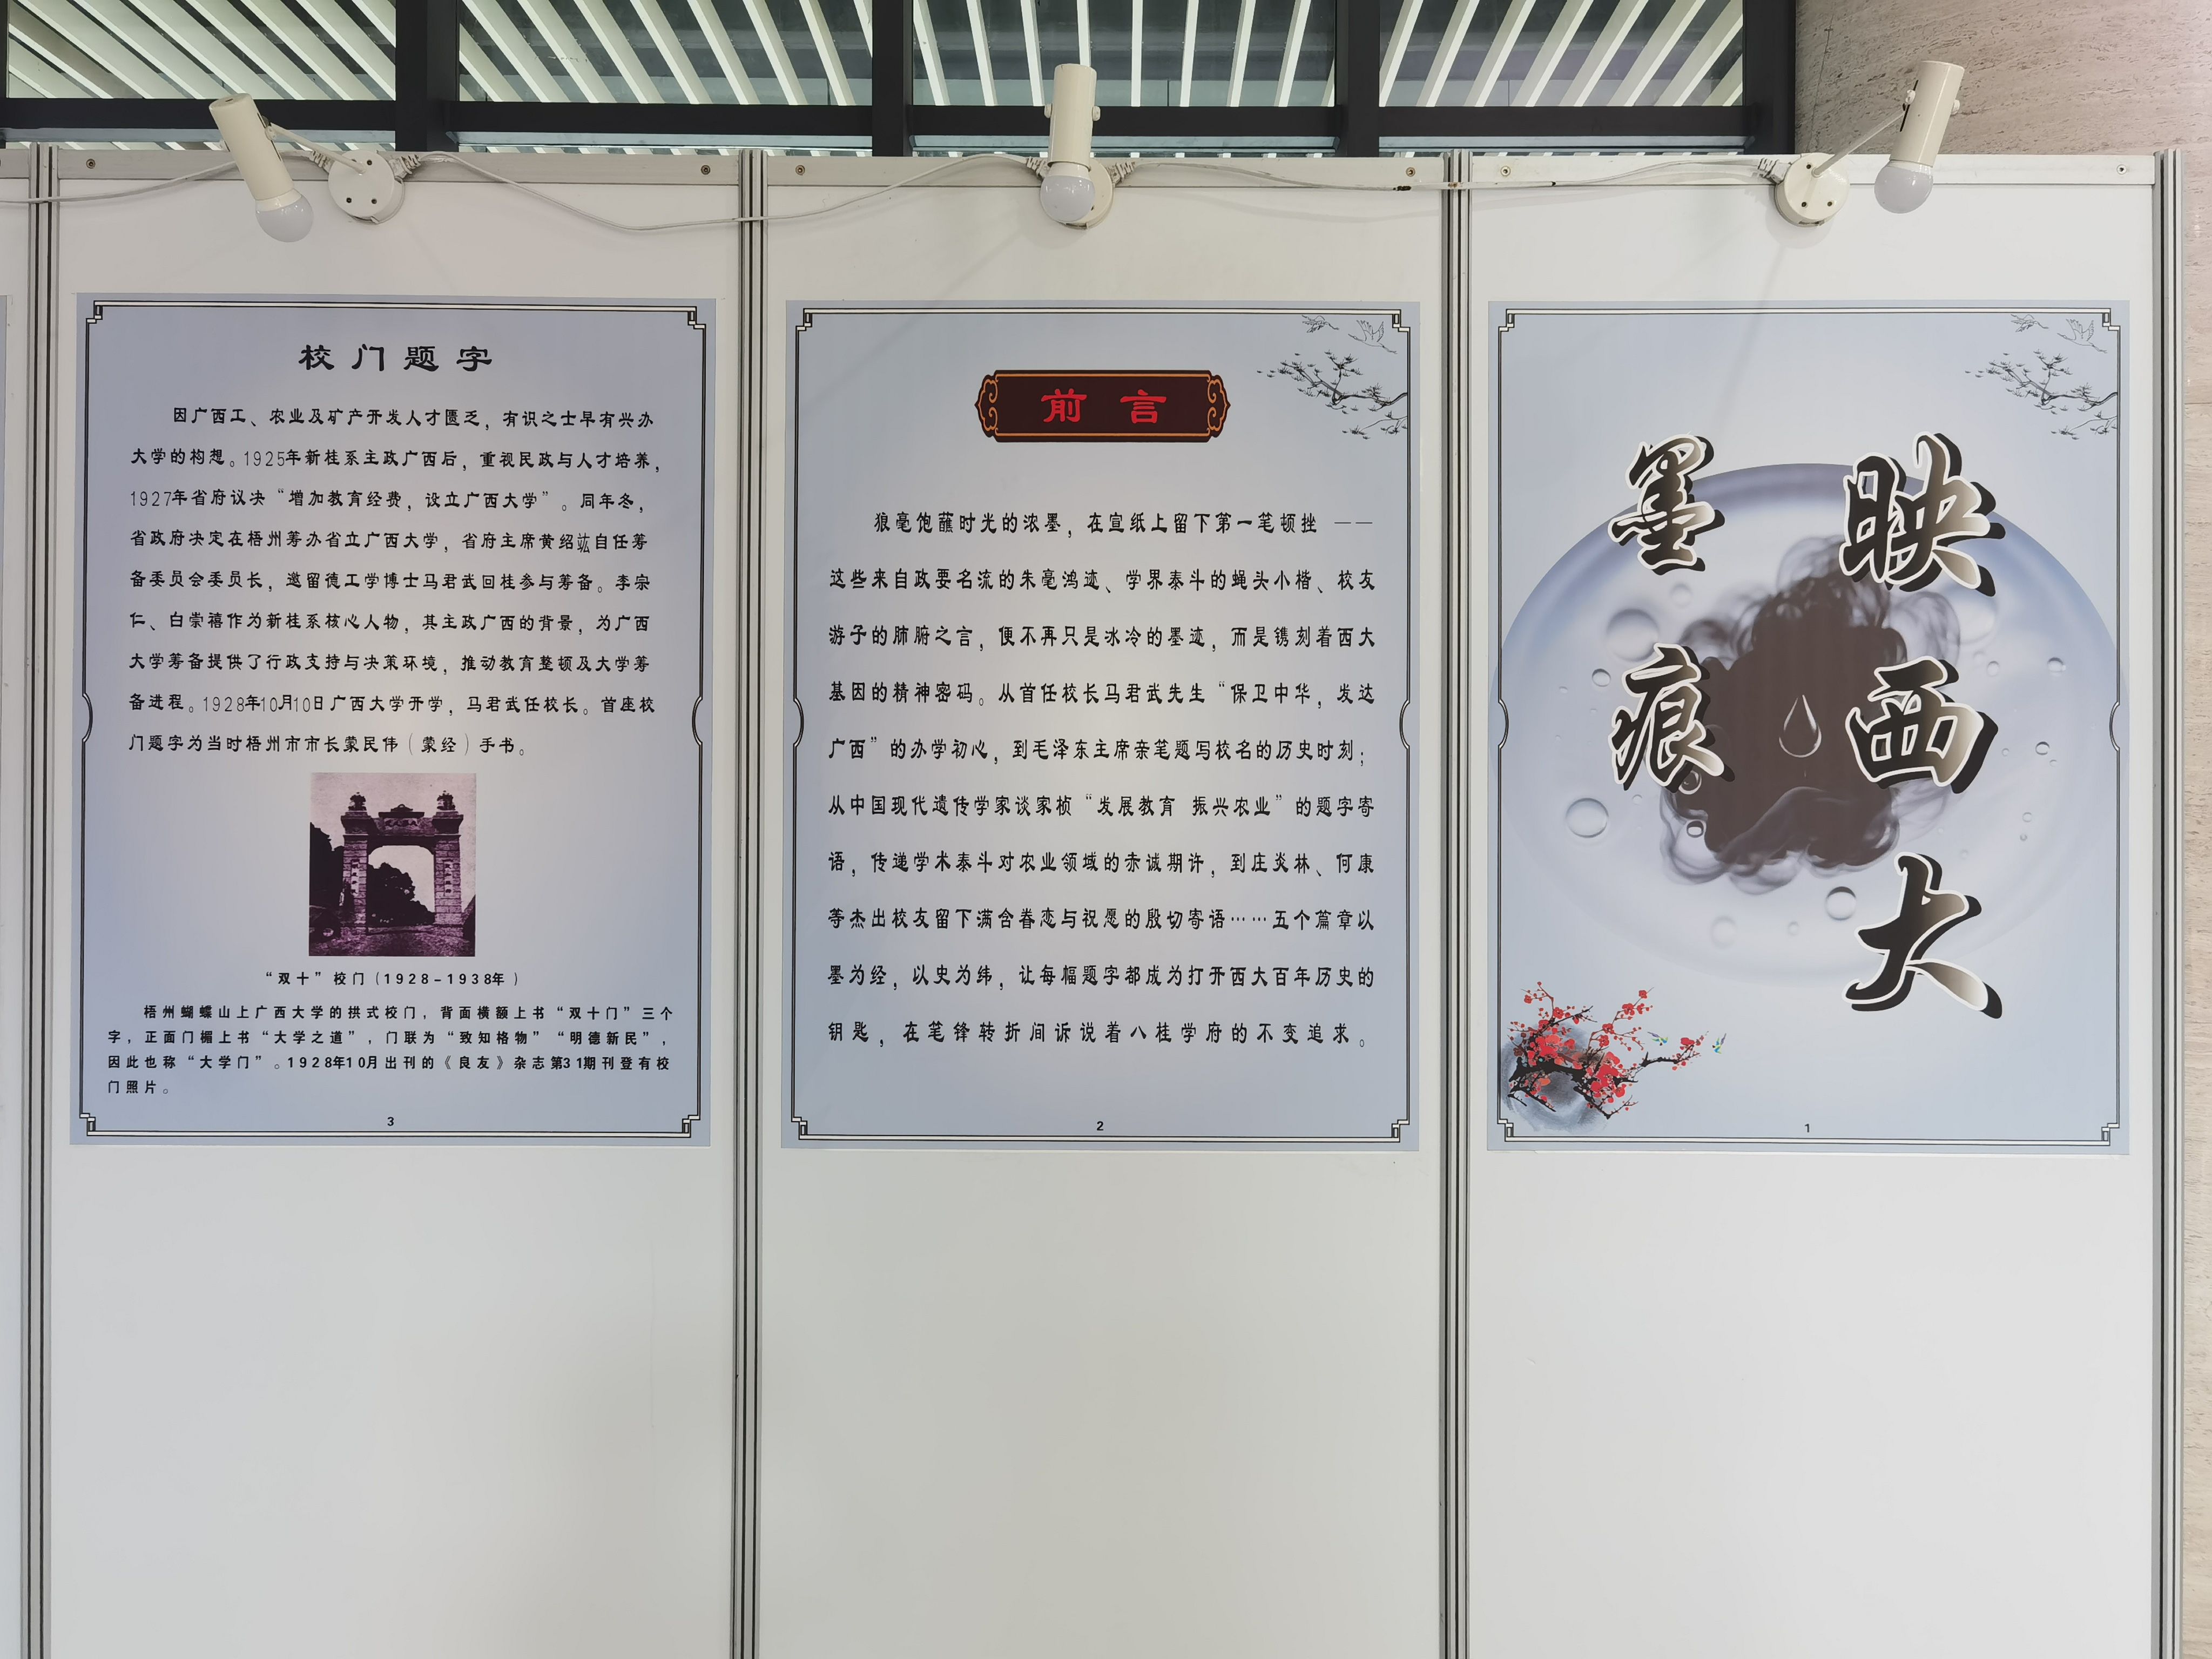 墨痕
映西大
1
前言
狼毫饱蘸时光的浓墨，在宣纸上留下第一笔顿挫 ——
这些来自政要名流的朱毫鸿迹、学界泰斗的蝇头小楷、校友
游子的肺腑之言，便不再只是冰冷的墨迹，而是镌刻着西大
基因的精神密码。从首任校长马君武先生“保卫中华，发达
广西”的办学初心，到毛泽东主席亲笔题写校名的历史时刻；
从中国现代遗传学家谈家桢“发展教育 振兴农业”的题字寄
语，传递学术泰斗对农业领域的赤诚期许，到庄炎林、何康
等杰出校友留下满含眷恋与祝愿的殷切寄语……五个篇章以
墨为经，以史为纬，让每幅题字都成为打开西大百年历史的
钥匙，在笔锋转折间诉说着八桂学府的不变追求。
2
校门题字
因广西工、农业及矿产开发人才匮乏，有识之士早有兴办
大学的构想。1925年新桂系主政广西后，重视民政与人才培养，
1927年省府议决“增加教育经费，设立广西大学”。同年冬，
省政府决定在梧州筹办省立广西大学，省府主席黄绍竑自任筹
备委员会委员长，邀留德工学博士马君武回桂参与筹备。李宗
仁、白崇禧作为新桂系核心人物，其主政广西的背景，为广西
大学筹备提供了行政支持与决策环境，推动教育整顿及大学筹
备进程。1928年10月10日广西大学开学，马君武任校长。首座校
门题字为当时梧州市市长蒙民伟（蒙经）手书。
“双十”校门（1928-1938年）
梧州蝴蝶山上广西大学的拱式校门，背面横额上书“双十门”三个
字，正面门楣上书“大学之道”，门联为“致知格物”“明德新民”，
因此也称“大学门”。1928年10月出刊的《良友》杂志第31期刊登有校
门照片。
3